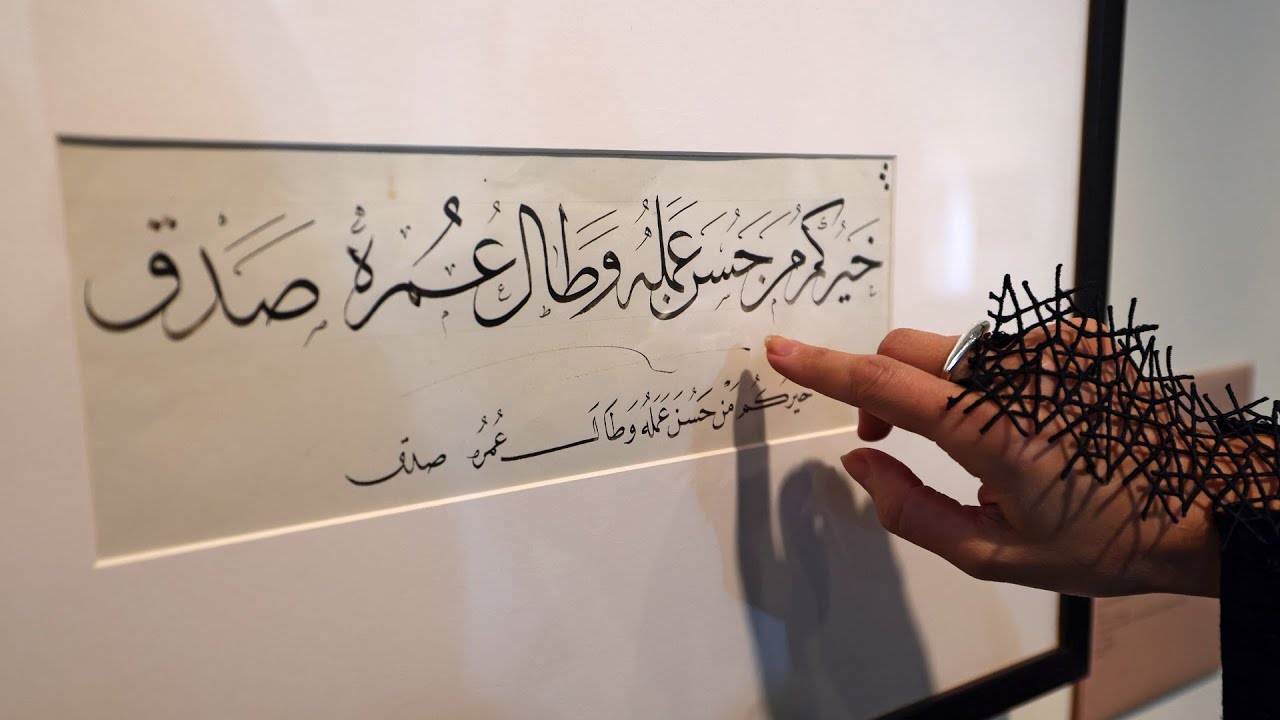 خَيْرُكُمْ مَنْ حَسُنَ عَمَلُهُ وَطَالَ عُمُرُهُ صَدَقَ
خيركُم مَنْ حَسُنَ عَمَلُهُ وَطَالَ عُمُرُهُ صدق